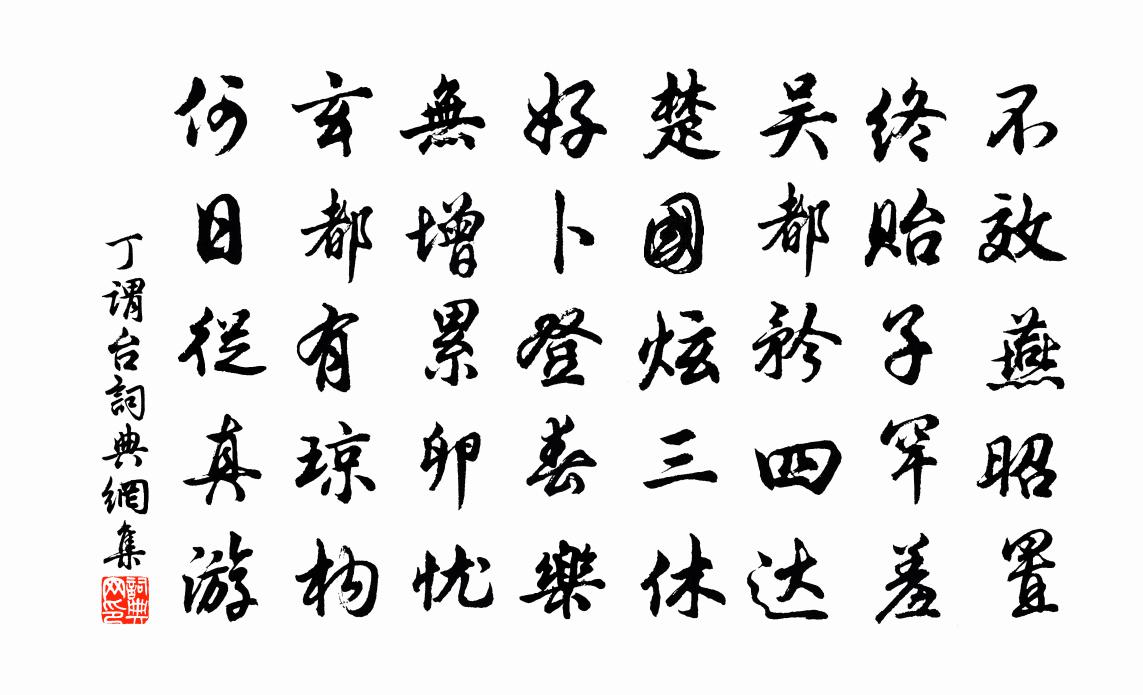 不效燕昭置
终贻子罕羞
吴都矜四达
楚國炫三休
好卜登春樂
無增累卵忧
玄都有琼构
何日從真游
丁谓台詞典網集
詞典